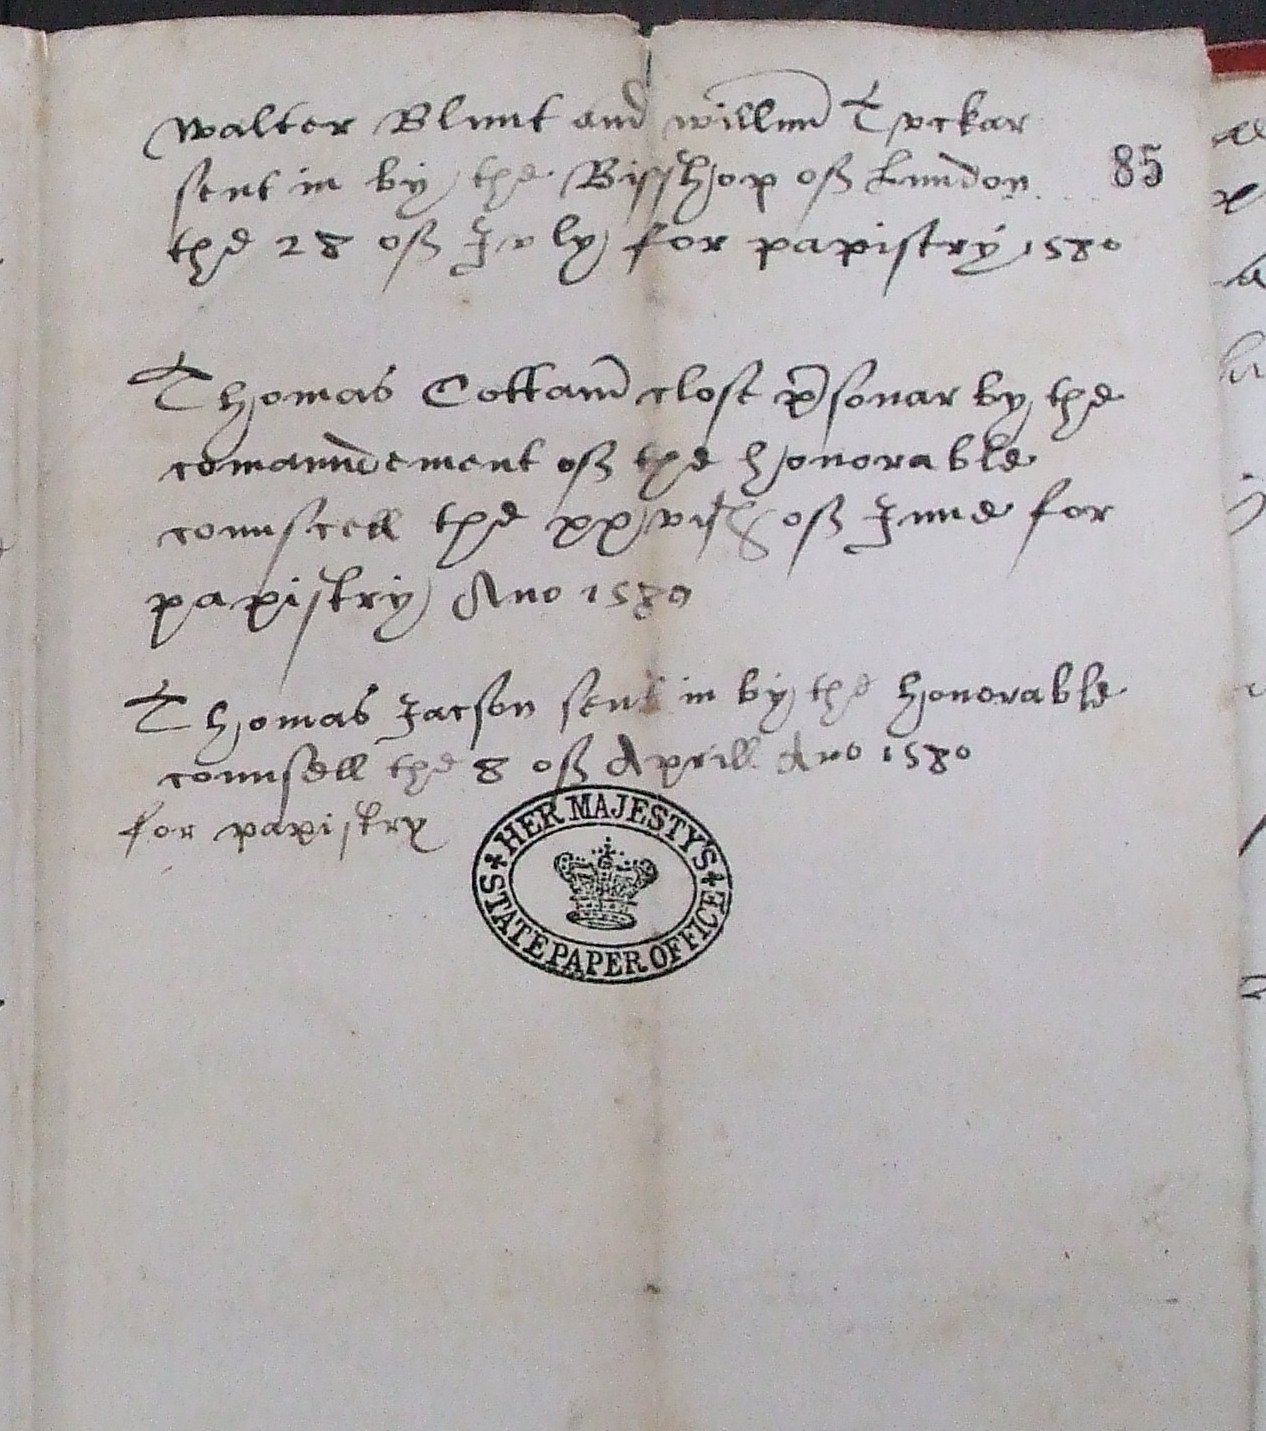 Walter Blunt and willm Tvckar
sent in by the Bisshop off Lundon
85
the 28 off Jvly for papistry 1580
Thomas Cottam close prsonar by the
comaundement off the honorable
counscell the xxviith off June for
papistry Ano 1580
Thomas Jacson sent in by the honorable
counsell the 8 off Aprill Ano 1580
for papistry
HER MAJESTY'S
STATE PAPER OFFICE